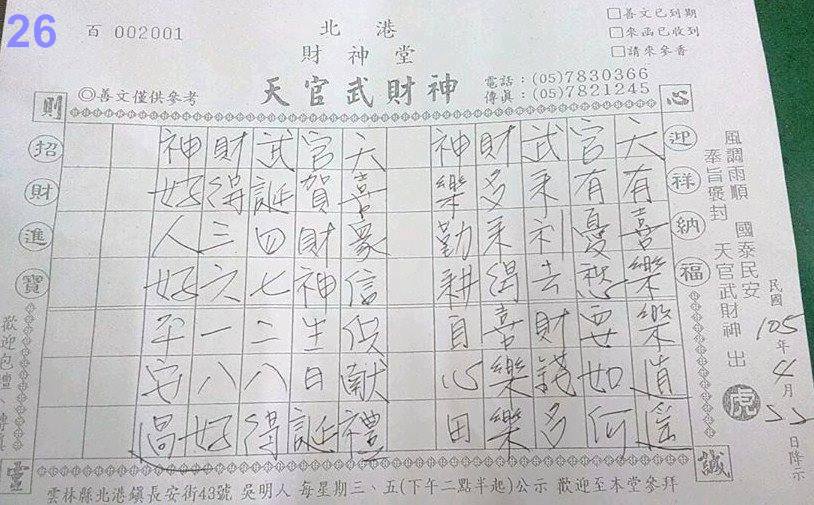 26
百 002001
北港
財神堂
天官武財神
◎善文僅供參考
電話：(05)7830366
傳眞：(05)7821245
□善文已到期
□來函已收到
□請來參香
心
誠
則
靈
迎祥納福
招財進寶
風調雨順 國泰民安
奉旨褒封 天官武財神 出
虎
民國105年4月22日降示
天有喜樂樂逍遙
官有憂愁要如何
武来利去財錢多
財多来得喜樂樂
神樂勤耕自心田
天喜眾信供獻禮
官賀財神生日誕
武誕四七二八得
財得三六一八好
神好人好平安過
歡迎包禮
雲林縣北港鎮長安街43號 吳明人 每星期三、五(下午二點半起)公示 歡迎至本堂參拜